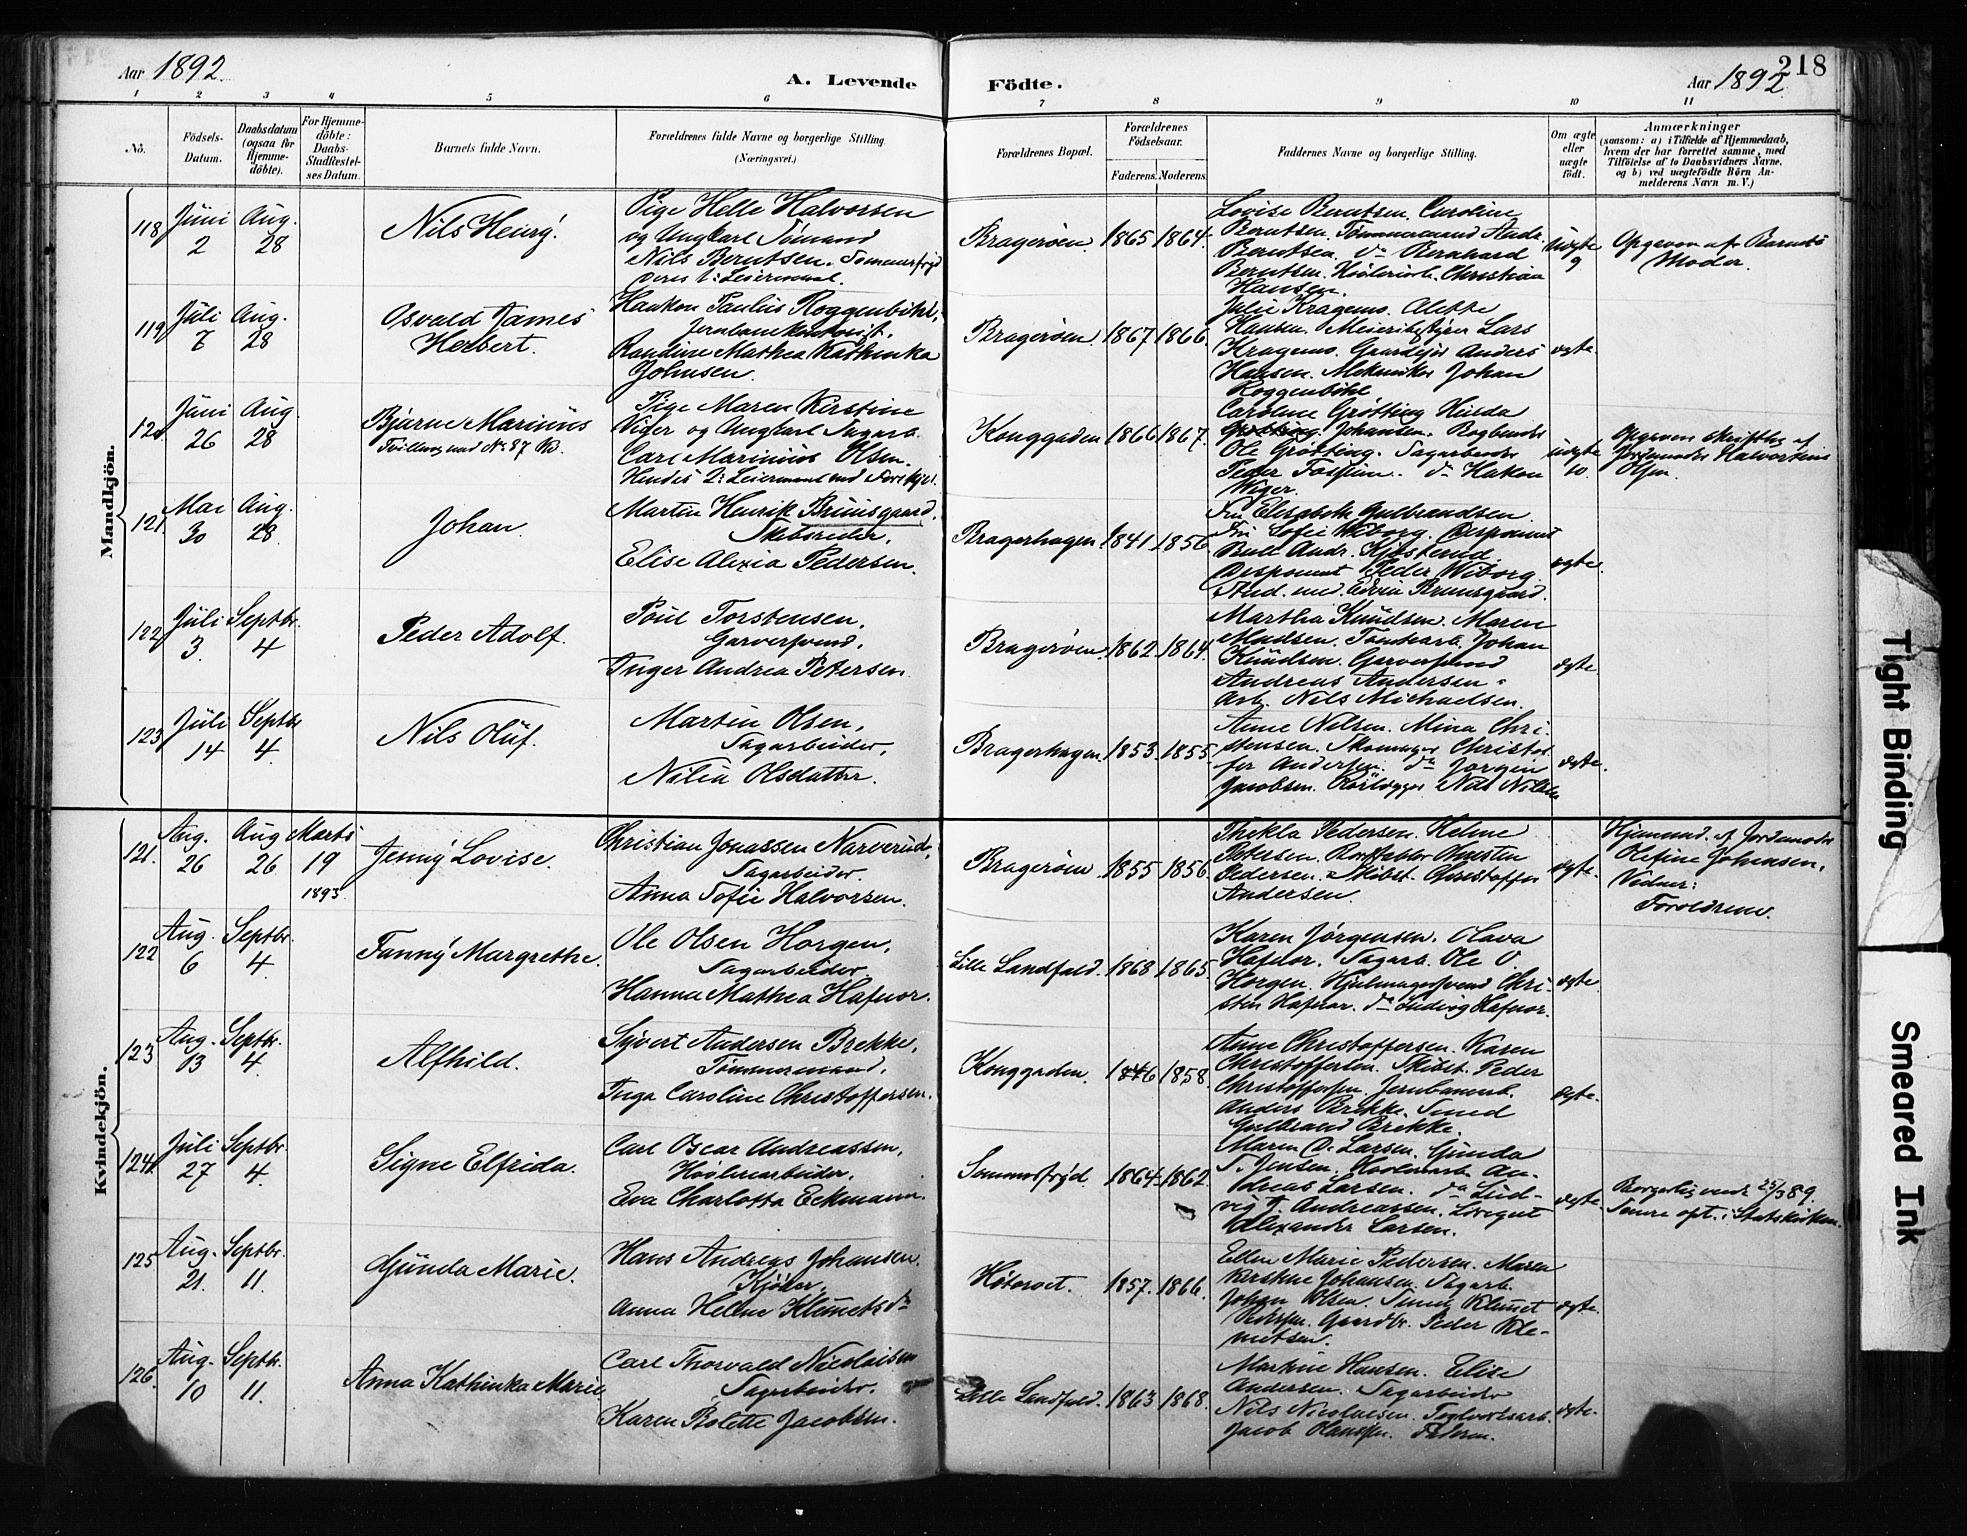 218
Aar 1892.
A. Levende
Födte.
Aar 1892
1 2 3 4 5 6 7 8 9 10 11
No.
Födsels-
Datum.
Daabsdatum
(ogsaa for
Hjemme-
döbte).
For Hjemme-
döbte:
Daabs-
Stadfæstel-
ses Datum.
Barnets fulde Navn.
Forældrenes fulde Navne og borgerlige Stilling.
(Næringsvei.)
Forældrenes Bopæl.
Forældrenes
Födselsaar.
Faderens. Moderens.
Faddernes Navne og borgerlige Stilling.
Om ægte
eller
uægte
födt.
Anmærkninger
(saasom: a) i Tilfælde af Hjemmedaab,
hvem der har forrettet samme, med
Tilföielse af to Daabsvidners Navne.
og b) ved uægtefödte Börn An-
melderens Navn m. V.)
Mandkjön.
118
Juni
2
Aug.
28
Nils Henry.
Pige Helle Halvorsen
og Ungkarl Sömand
Nils Berntsen. Sommerfryd
deres 1: Leiermaal.
Bragerøen
1865
1864.
Lovise Berntsen. Caroline
Berntsen. Tømmermand Andr.
Berntsen. do Bernhard
Berntsen. Høvleriarb. Christian
Hansen.
uægte
9
Opgiven af Barnets
Moder.
119
Juli
7
Aug.
28
Osvald James
Herbert.
Haakon Paulus Roggenbihl,
Jernbanekontorist.
Randine Mathea Kathinka
Johnsen.
Bragerøen
1867
1866.
Julie Kragemo. Alette
Hansen. Meieribestyrer Lars
Kragemo. Gaardejer Anders
Hansen. Mekaniker Johan
Roggenbihl
ægte.
120
Juni
26
Aug
28
Bjarne Marinius
Tvilling med No 87 B.
Pige Maren Kirstine
Vider og Ungkarl Sagarb.
Carl Marinius Olsen.
Hendes 2: Leiermaal med Forskjel.
Konggaden
1866
1867.
Caroline Grötting. Hulda
Johansen. Bogbinder
Ole Grötting. Sagarbeider
Peder do Hakon
Wiger.
uægte
10
Opgiven skriftlig af
Jordemoder Halvorsine
Olsen.
121.
Mai
30
Aug.
28
Johan.
Martin Henrik Bruusgaard.
Skibsreder.
Elise Alexia Pedersen.
Bragerhagen
1841
1856
Fru Elisabeth Gulbrandsen.
Fru Sofie Wiborg. Disponent
Bull Andr. Kjøsterud.
Disponent Peder Wiborg.
Stud. med. Edvin Bruusgaard.
ægte.
122
Juli
3.
Septbr.
4
Peder Adolf.
Poul Torstensen,
Garversvend,
Inger Andrea Petersen.
Bragerøen.
1862
1864.
Martha Knudsen. Maren
Madsen. Tomtearb. Johan
Knudsen. Garversvend
Andreas Andersen.
Arb. Nils Michaelsen.
ægte
123
Juli
14
Septbr
4.
Nils Oluf.
Martin Olsen,
Sagarbeider,
Nilia Olsdatter.
Bragerhagen.
1853
1855.
Anne Nilsen. Mina Chri-
stensen. Skomager Christof
fer Andersen. do Jørgen
Jacobsen. Rörlægger Nils Nilsen
ægte.
Kvindekjön.
121.
Aug.
26
Aug
26
Marts
19
1893
Jenny Lovise.
Christian Jonassen Narverud,
Sagarbeider.
Anna Sofie Halvorsen.
Bragerøen
1855
1856.
Thekla Pedersen. Helene
Petersen. Christen
Pedersen. Skibst. Christoffer
Andersen.
ægte.
Hjemmed. af Jordemoder
Olefine Johansen.
Vidner:
Forældrene.
122
Aug.
6
Septbr.
4
Fanny Margrethe.
Ole Olsen Horgen,
Sagarbeider
Hanna Mathea Hafnor.
Lille Landfald.
1868
1865.
Karen Jørgensen. Olava
Hafnor. Sagarb. Ole O.
Horgen. Hjulmagersvend Chri-
sten Hafnor. do Ludvig Hafnor.
ægte.
123
Aug.
13
Septbr.
4.
Alfhild.
Syvert Andersen Brekke,
Tømmermand,
Inga Caroline Christoffersen.
Konggaden.
1846
1858.
Anne Christoffersen. Karen
Christoffersen. Skibst. Peder
Christoffersen. Jernbanearb.
Anders Brekke. Smed
Gulbrand Brekke.
ægte.
124
Juli
27
Septbr
4.
Signe Elfrida.
Carl Oscar Andreassen,
Høvleriarbeider,
Eva Charlotta Eckmann.
Sommerfryd.
1864
1862
Maren D. Larsen. Gunda
T. Jensen. Høvleriarb. An-
dreas Larsen. do Lud-
vig T. Andreassen.
Alexander Larsen.
ægte.
Borgerlig viede 25/3 89.
Senere opt. i Statskirken.
125
Aug.
21.
Septbr.
11.
Gunda Marie.
Hans Andreas Johansen.
Kjører,
Anna Helene Klemetsdr
Høtorvet.
1857.
1866.
Ellen Marie Pedersen. Maren
Kirstine Johansen. Sagarb.
Johan Olsen. Smed Klemet
Pedersen. Gaardbr. Peder Kle-
metsen.
ægte.
126.
Aug.
10
Septbr.
11.
Anna Kathinka Marie
Carl Thorvald Nicolaisen
Sagarbeider.
Karen Bolette Jacobsen.
Lille Landfald.
1863
1868.
Martine Hansen. Elise
Andersen. Sagarbeider
Nils Nicolaisen. Teglverksarb.
Jacob Hanssen. Faderen.
ægte.
Tight Binding
Smeared Ink